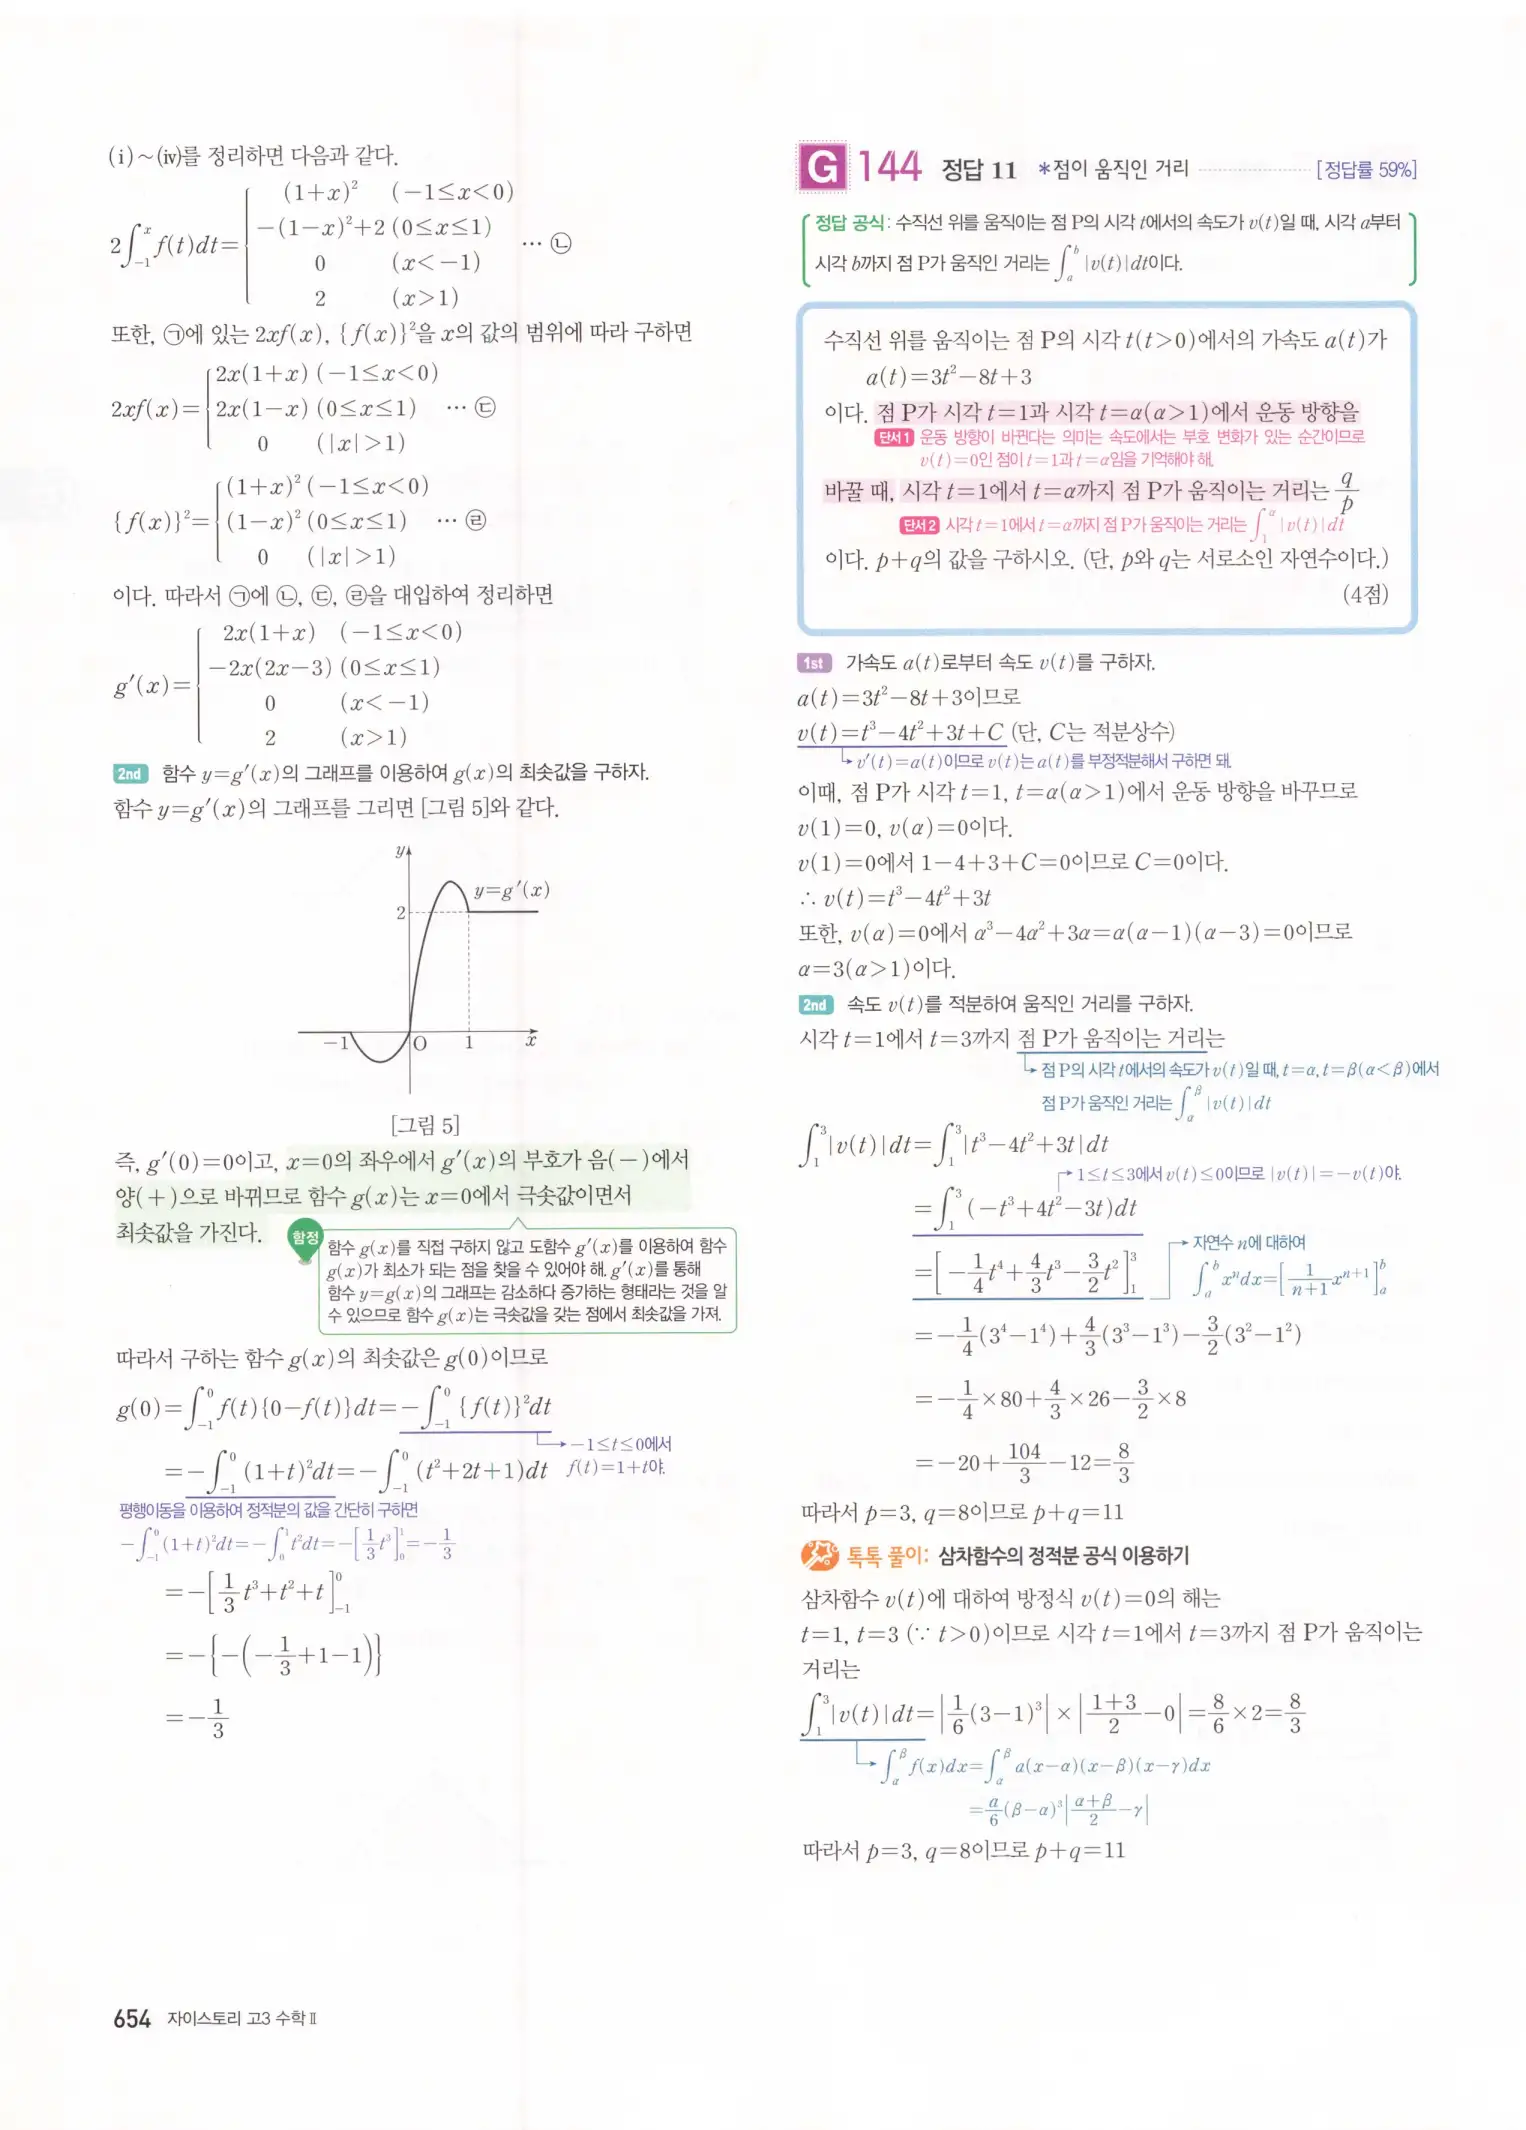 (ⅰ)~(ⅳ)를 정리하면 다음과 같다.
2∫_{-1}^{x} f(t)dt= { (1+x)² (-1≤x<0)
-(1-x)²+2 (0≤x≤1)
0 (x<-1)
2 (x>1) … ㉡
또한, ㉠에 있는 2xf(x), {f(x)}²을 x의 값의 범위에 따라 구하면
2xf(x)= { 2x(1+x) (-1≤x<0)
2x(1-x) (0≤x≤1) … ㉢
0 (|x|>1)
{f(x)}²= { (1+x)² (-1≤x<0)
(1-x)² (0≤x≤1) … ㉣
0 (|x|>1)
이다. 따라서 ㉠에 ㉡, ㉢, ㉣을 대입하여 정리하면
g′(x)= { 2x(1+x) (-1≤x<0)
-2x(2x-3) (0≤x≤1)
0 (x<-1)
2 (x>1)
2nd 함수 y=g′(x)의 그래프를 이용하여 g(x)의 최솟값을 구하자.
함수 y=g′(x)의 그래프를 그리면 [그림 5]와 같다.
y
y=g′(x)
2
-1 O 1 x
[그림 5]
즉, g′(0)=0이고, x=0의 좌우에서 g′(x)의 부호가 음(-)에서
양(+)으로 바뀌므로 함수 g(x)는 x=0에서 극솟값이면서
최솟값을 가진다.
함정 함수 g(x)를 직접 구하지 않고 도함수 g′(x)를 이용하여 함수
g(x)가 최소가 되는 점을 찾을 수 있어야 해. g′(x)를 통해
함수 y=g(x)의 그래프는 감소하다 증가하는 형태라는 것을 알
수 있으므로 함수 g(x)는 극솟값을 갖는 점에서 최솟값을 가져.
따라서 구하는 함수 g(x)의 최솟값은 g(0)이므로
g(0)=∫_{-1}^{0} f(t){0-f(t)}dt=-∫_{-1}^{0} {f(t)}²dt
-1≤t≤0에서
f(t)=1+t야.
=-∫_{-1}^{0} (1+t)²dt=-∫_{-1}^{0} (t²+2t+1)dt
평행이동을 이용하여 정적분의 값을 간단히 구하면
-∫_{-1}^{0}(1+t)²dt=-∫_{0}^{1}t²dt=-[1/3 t³]_{0}^{1}=-1/3
=-[1/3 t³+t²+t]_{-1}^{0}
=-{-(-1/3+1-1)}
=-1/3
654 자이스토리 고3 수학Ⅱ
G 144 정답 11 *점이 움직인 거리 [정답률 59%]
정답 공식: 수직선 위를 움직이는 점 P의 시각 t에서의 속도가 v(t)일 때, 시각 a부터
시각 b까지 점 P가 움직인 거리는 ∫_{a}^{b} |v(t)|dt이다.
수직선 위를 움직이는 점 P의 시각 t(t>0)에서의 가속도 a(t)가
a(t)=3t²-8t+3
이다. 점 P가 시각 t=1과 시각 t=α(α>1)에서 운동 방향을
단서1 운동 방향이 바뀐다는 의미는 속도에서는 부호 변화가 있는 순간이므로
v(t)=0인 점이 t=1과 t=α임을 기억해야 해.
바꿀 때, 시각 t=1에서 t=α까지 점 P가 움직이는 거리는 q/p
단서2 시각 t=1에서 t=α까지 점 P가 움직이는 거리는 ∫_{1}^{α} |v(t)|dt
이다. p+q의 값을 구하시오. (단, p와 q는 서로소인 자연수이다.)
(4점)
1st 가속도 a(t)로부터 속도 v(t)를 구하자.
a(t)=3t²-8t+3이므로
v(t)=t³-4t²+3t+C (단, C는 적분상수)
v′(t)=a(t)이므로 v(t)는 a(t)를 부정적분해서 구하면 돼.
이때, 점 P가 시각 t=1, t=α(α>1)에서 운동 방향을 바꾸므로
v(1)=0, v(α)=0이다.
v(1)=0에서 1-4+3+C=0이므로 C=0이다.
∴ v(t)=t³-4t²+3t
또한, v(α)=0에서 α³-4α²+3α=α(α-1)(α-3)=0이므로
α=3(α>1)이다.
2nd 속도 v(t)를 적분하여 움직인 거리를 구하자.
시각 t=1에서 t=3까지 점 P가 움직이는 거리는
점 P의 시각 t에서의 속도가 v(t)일 때, t=α, t=β(α<β)에서
점 P가 움직인 거리는 ∫_{α}^{β} |v(t)|dt
∫_{1}^{3}|v(t)|dt=∫_{1}^{3}|t³-4t²+3t|dt
1≤t≤3에서 v(t)≤0이므로 |v(t)|=-v(t)야.
=∫_{1}^{3} (-t³+4t²-3t)dt
자연수 n에 대하여
=[-1/4 t⁴+4/3 t³-3/2 t²]_{1}^{3} ∫_{a}^{b} xⁿdx=[1/(n+1) xⁿ⁺¹]_{a}^{b}
=-1/4(3⁴-1⁴)+4/3(3³-1³)-3/2(3²-1²)
=-1/4×80+4/3×26-3/2×8
=-20+104/3-12=8/3
따라서 p=3, q=8이므로 p+q=11
톡톡 풀이: 삼차함수의 정적분 공식 이용하기
삼차함수 v(t)에 대하여 방정식 v(t)=0의 해는
t=1, t=3 (∵ t>0)이므로 시각 t=1에서 t=3까지 점 P가 움직이는
거리는
∫_{1}^{3}|v(t)|dt=|1/6(3-1)³|×|(1+3)/2-0|=8/6×2=8/3
∫_{α}^{β} f(x)dx=∫_{α}^{β} a(x-α)(x-β)(x-γ)dx
=a/6(β-α)³|(α+β)/2-γ|
따라서 p=3, q=8이므로 p+q=11